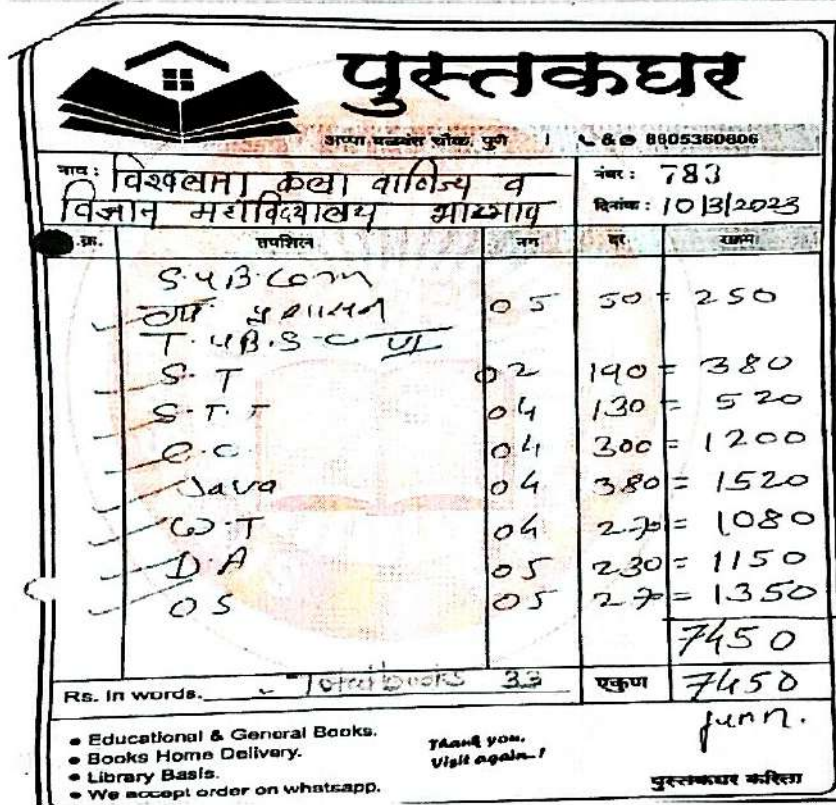 पुस्तकघर
अप्पा बळवंत चौक, पुणे | & 8605360606
नाव : विश्वलता कला वाणिज्य व
विज्ञान महाविद्यालय भाटगाव
नंबर : 783
दिनांक : 10/3/2023
क्र. तपशिल नग दर रक्कम
S.Y B.Com
प्रशासन 05 50 = 250
T.Y B.S.C VI
S.T 02 190 = 380
S.T.T 04 130 = 520
C.C. 04 300 = 1200
Java 04 380 = 1520
W.T 04 270 = 1080
D.A 05 230 = 1150
OS 05 270 = 1350
7450
Rs. In words. Total books 33 एकुण 7450
• Educational & General Books.
• Books Home Delivery.
• Library Basis.
• We accept order on whatsapp.
Thank you,
Visit again..!
पुस्तकघर करिता